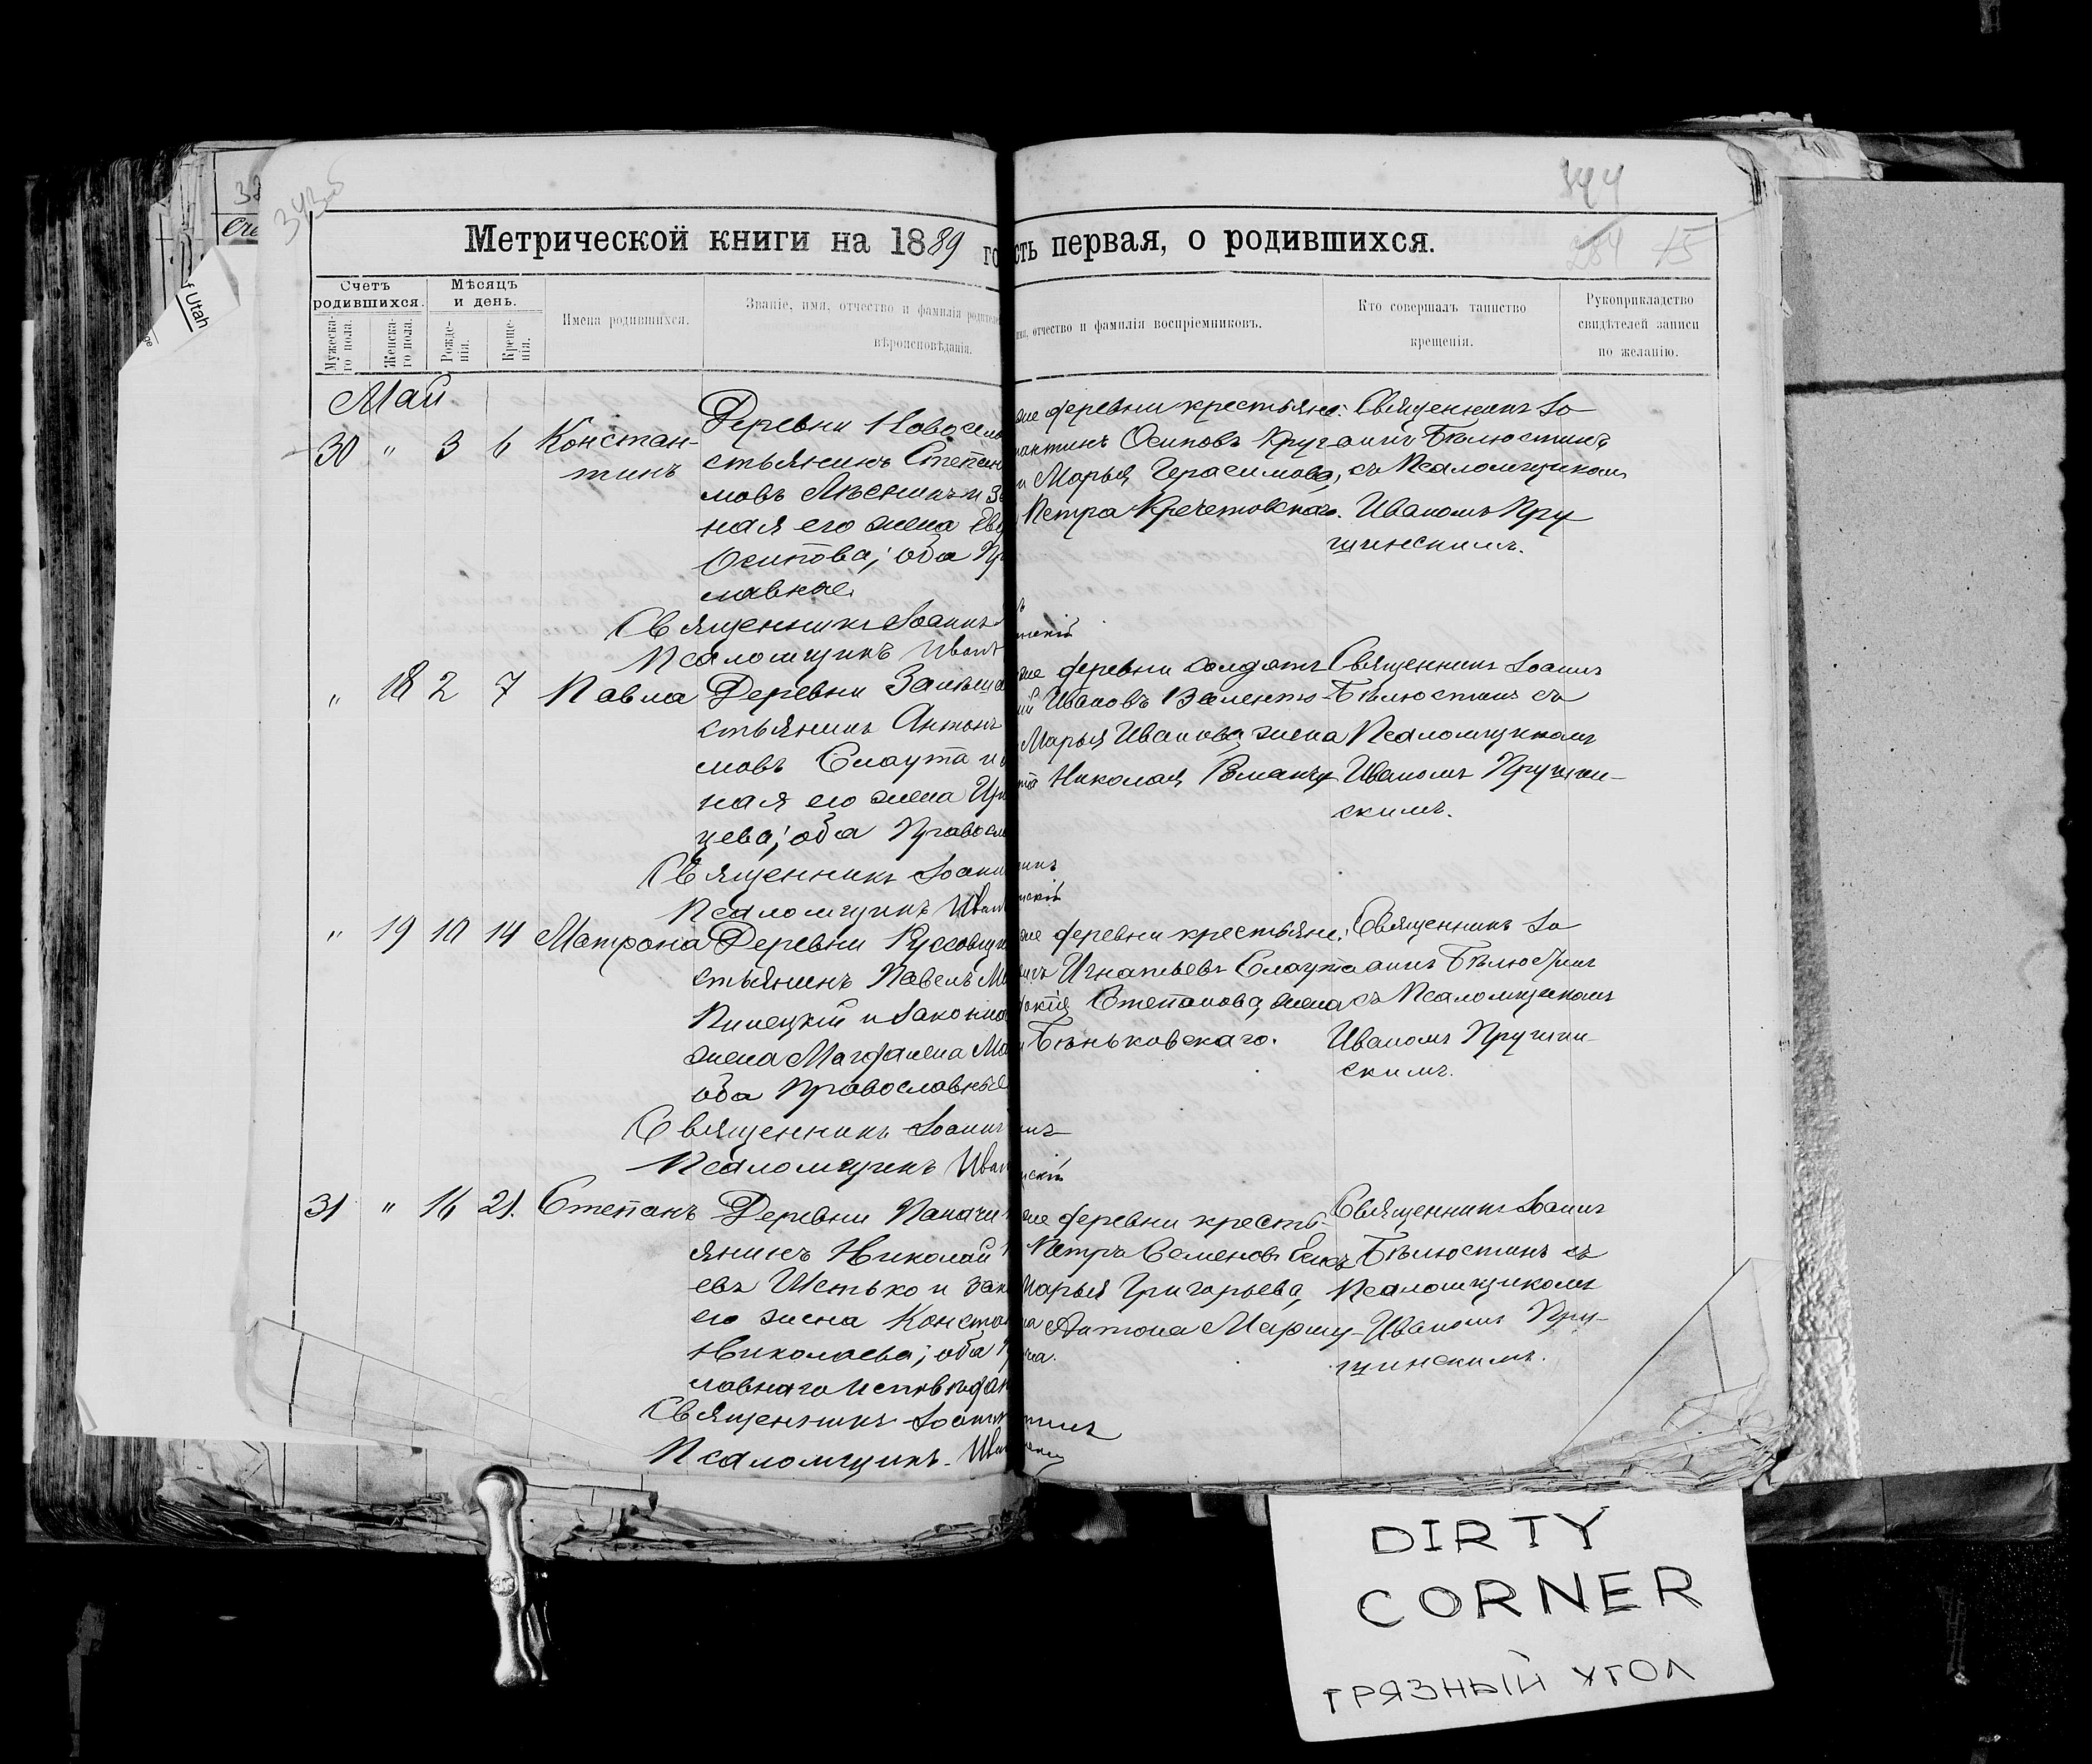 344
Метрической книги на 1889 го
сть первая, о родившихся.
Счетъ родившихся.
Мѣсяцъ и день.
Мужеска-го пола.
Женска-го пола.
Рожде-нія.
Креще-нія.
Имена родившихся.
Званіе, имя, отчество и фамилія родителе
вѣроисповѣданія.
отчество и фамилія воспріемниковъ.
Кто совершалъ таинство
крещенія.
Рукоприкладство
свидѣтелей записи
по желанію.
Май
30 " 3 6 Констан-
тинъ
Деревни Новосело
стьянинъ Степан
мовъ Лѣсникъ и за
ная его жена Ев
Осипова; оба Пр
славные.
Священникъ Іоаннъ
Псаломщикъ Иванъ
же деревни крестьяне:
нтинъ Осиповъ Круг
и Марья Герасимова,
Петра Кречетовскаго.
Священникъ Іо
аннъ Бѣлюстинъ
съ Псаломщикомъ
Иваномъ Пру
щинскимъ.
" 18 2 7 Павла
Деревни
стьянинъ Антонъ
мовъ Слаута и
ная его жена Ири
цева; оба Правосл
Священникъ Іоанн
Псаломщикъ Иван
же деревни солдатъ
Ивановъ Валенто
Марья Иванова жена
Николая Романчу
Священникъ Іоаннъ
Бѣлюстинъ съ
Псаломщикомъ
Иваномъ Прущин-
скимъ.
" 19 10 14 Матрона
Деревни Руссовщи
стьянинъ Павелъ М
и законна
жена Магдалена Ма
оба Православные
Священникъ Іоаннъ
Псаломщикъ Иван
же деревни крестьяне:
Игнатьевъ Слаута
Степанова жена
Бѣньковскаго.
Священникъ Іо
аннъ Бѣлюстинъ
съ Псаломщикомъ
Иваномъ Прущин-
скимъ.
31 " 16 21. Степанъ
Деревни
янинъ Николай
евъ Шетько и зак
его жена Конста
Николаева; оба П
лавнаго исповѣдан
Священникъ Іоаннъ
Псаломщикъ Иван
же деревни кресть-
Петръ Семеновъ
Марья Григорьева,
Антона Маршу-
Священникъ Іоаннъ
Бѣлюстинъ съ
Псаломщикомъ
Иваномъ Пру-
щинскимъ.
f Utah
DIRTY
CORNER
ГРЯЗНЫЙ УГОЛ